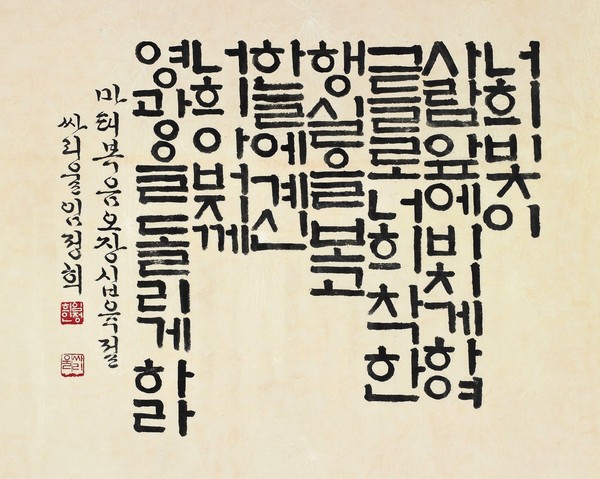 너희빛이
사람앞에비치게하여
그들로너희착한
행실을보고
하늘에계신
너희아버지께
영광을돌리게하라
마태복음오장십육절
싸리울임정희
임정희인
싸리울